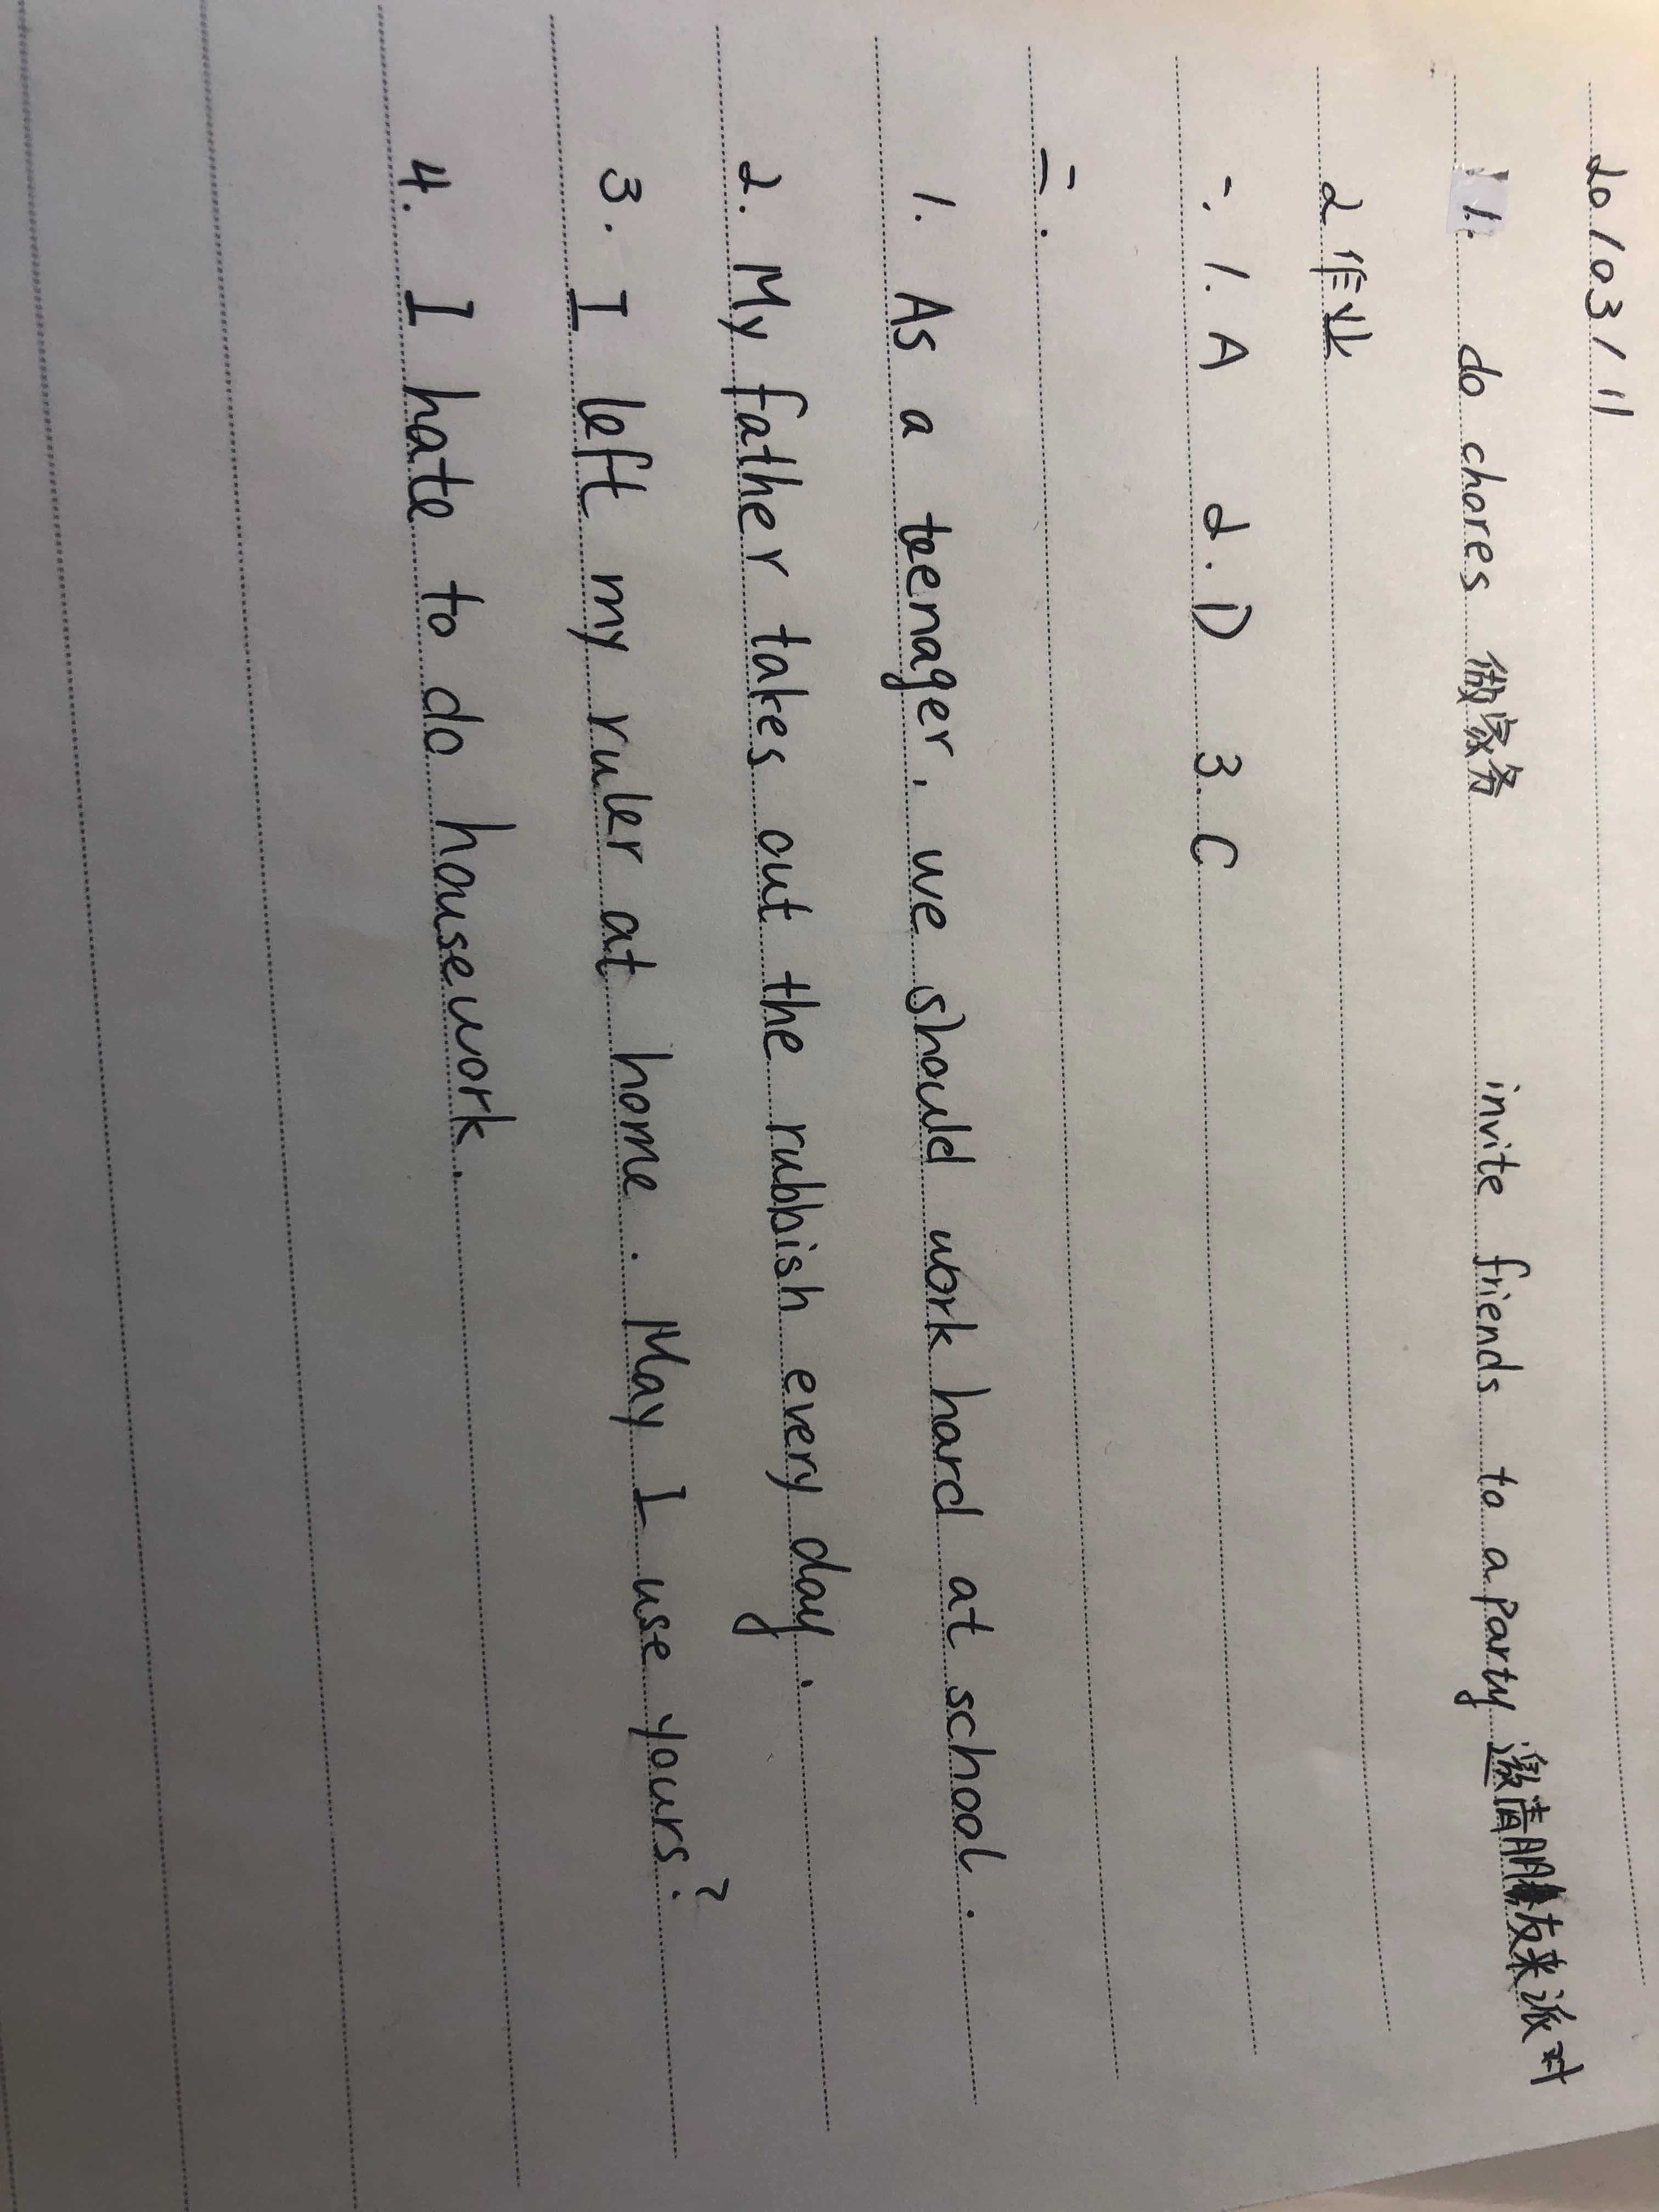 20/03/11
1. do chores 做家务 invite friends to a party 邀请朋友来派对
2 作业
一. 1. A 2. D 3. C
二.
1. As a teenager, we should work hard at school.
2. My father takes out the rubbish every day.
3. I left my ruler at home. May I use yours?
4. I hate to do housework.